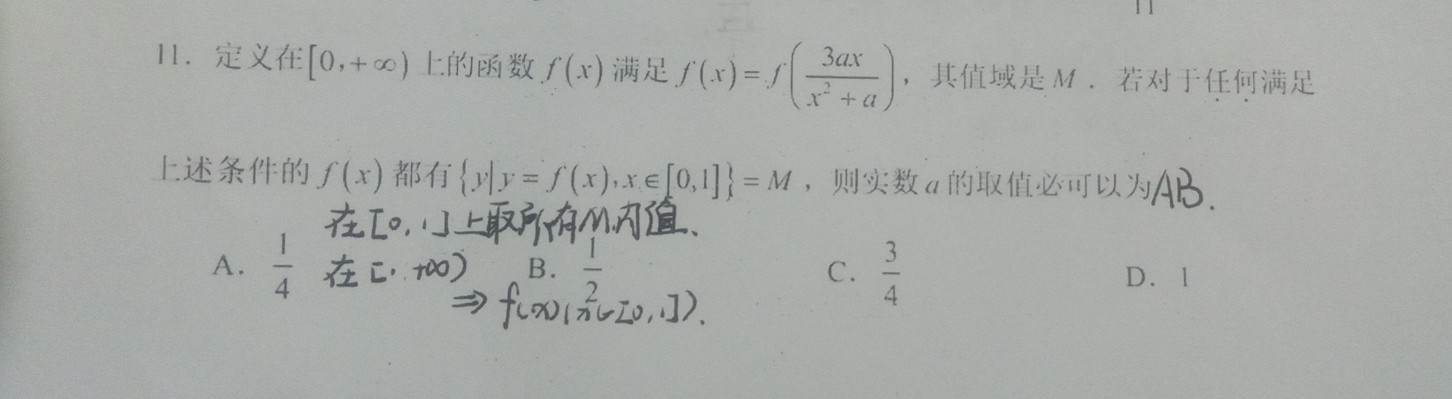 11
11. 定义在[0,+∞)上的函数 f(x) 满足 f(x)=f(3ax/(x²+a))，其值域是 M．若对于任何满足
上述条件的 f(x) 都有{y|y=f(x),x∈[0,1]}=M，则实数 a 的取值必可以为AB.
在[0,1]上取所有M内值.
A. 1/4 在[ +∞) B. 1/2 C. 3/4 D. 1
⇒ f(x)(x∈[0,1]).